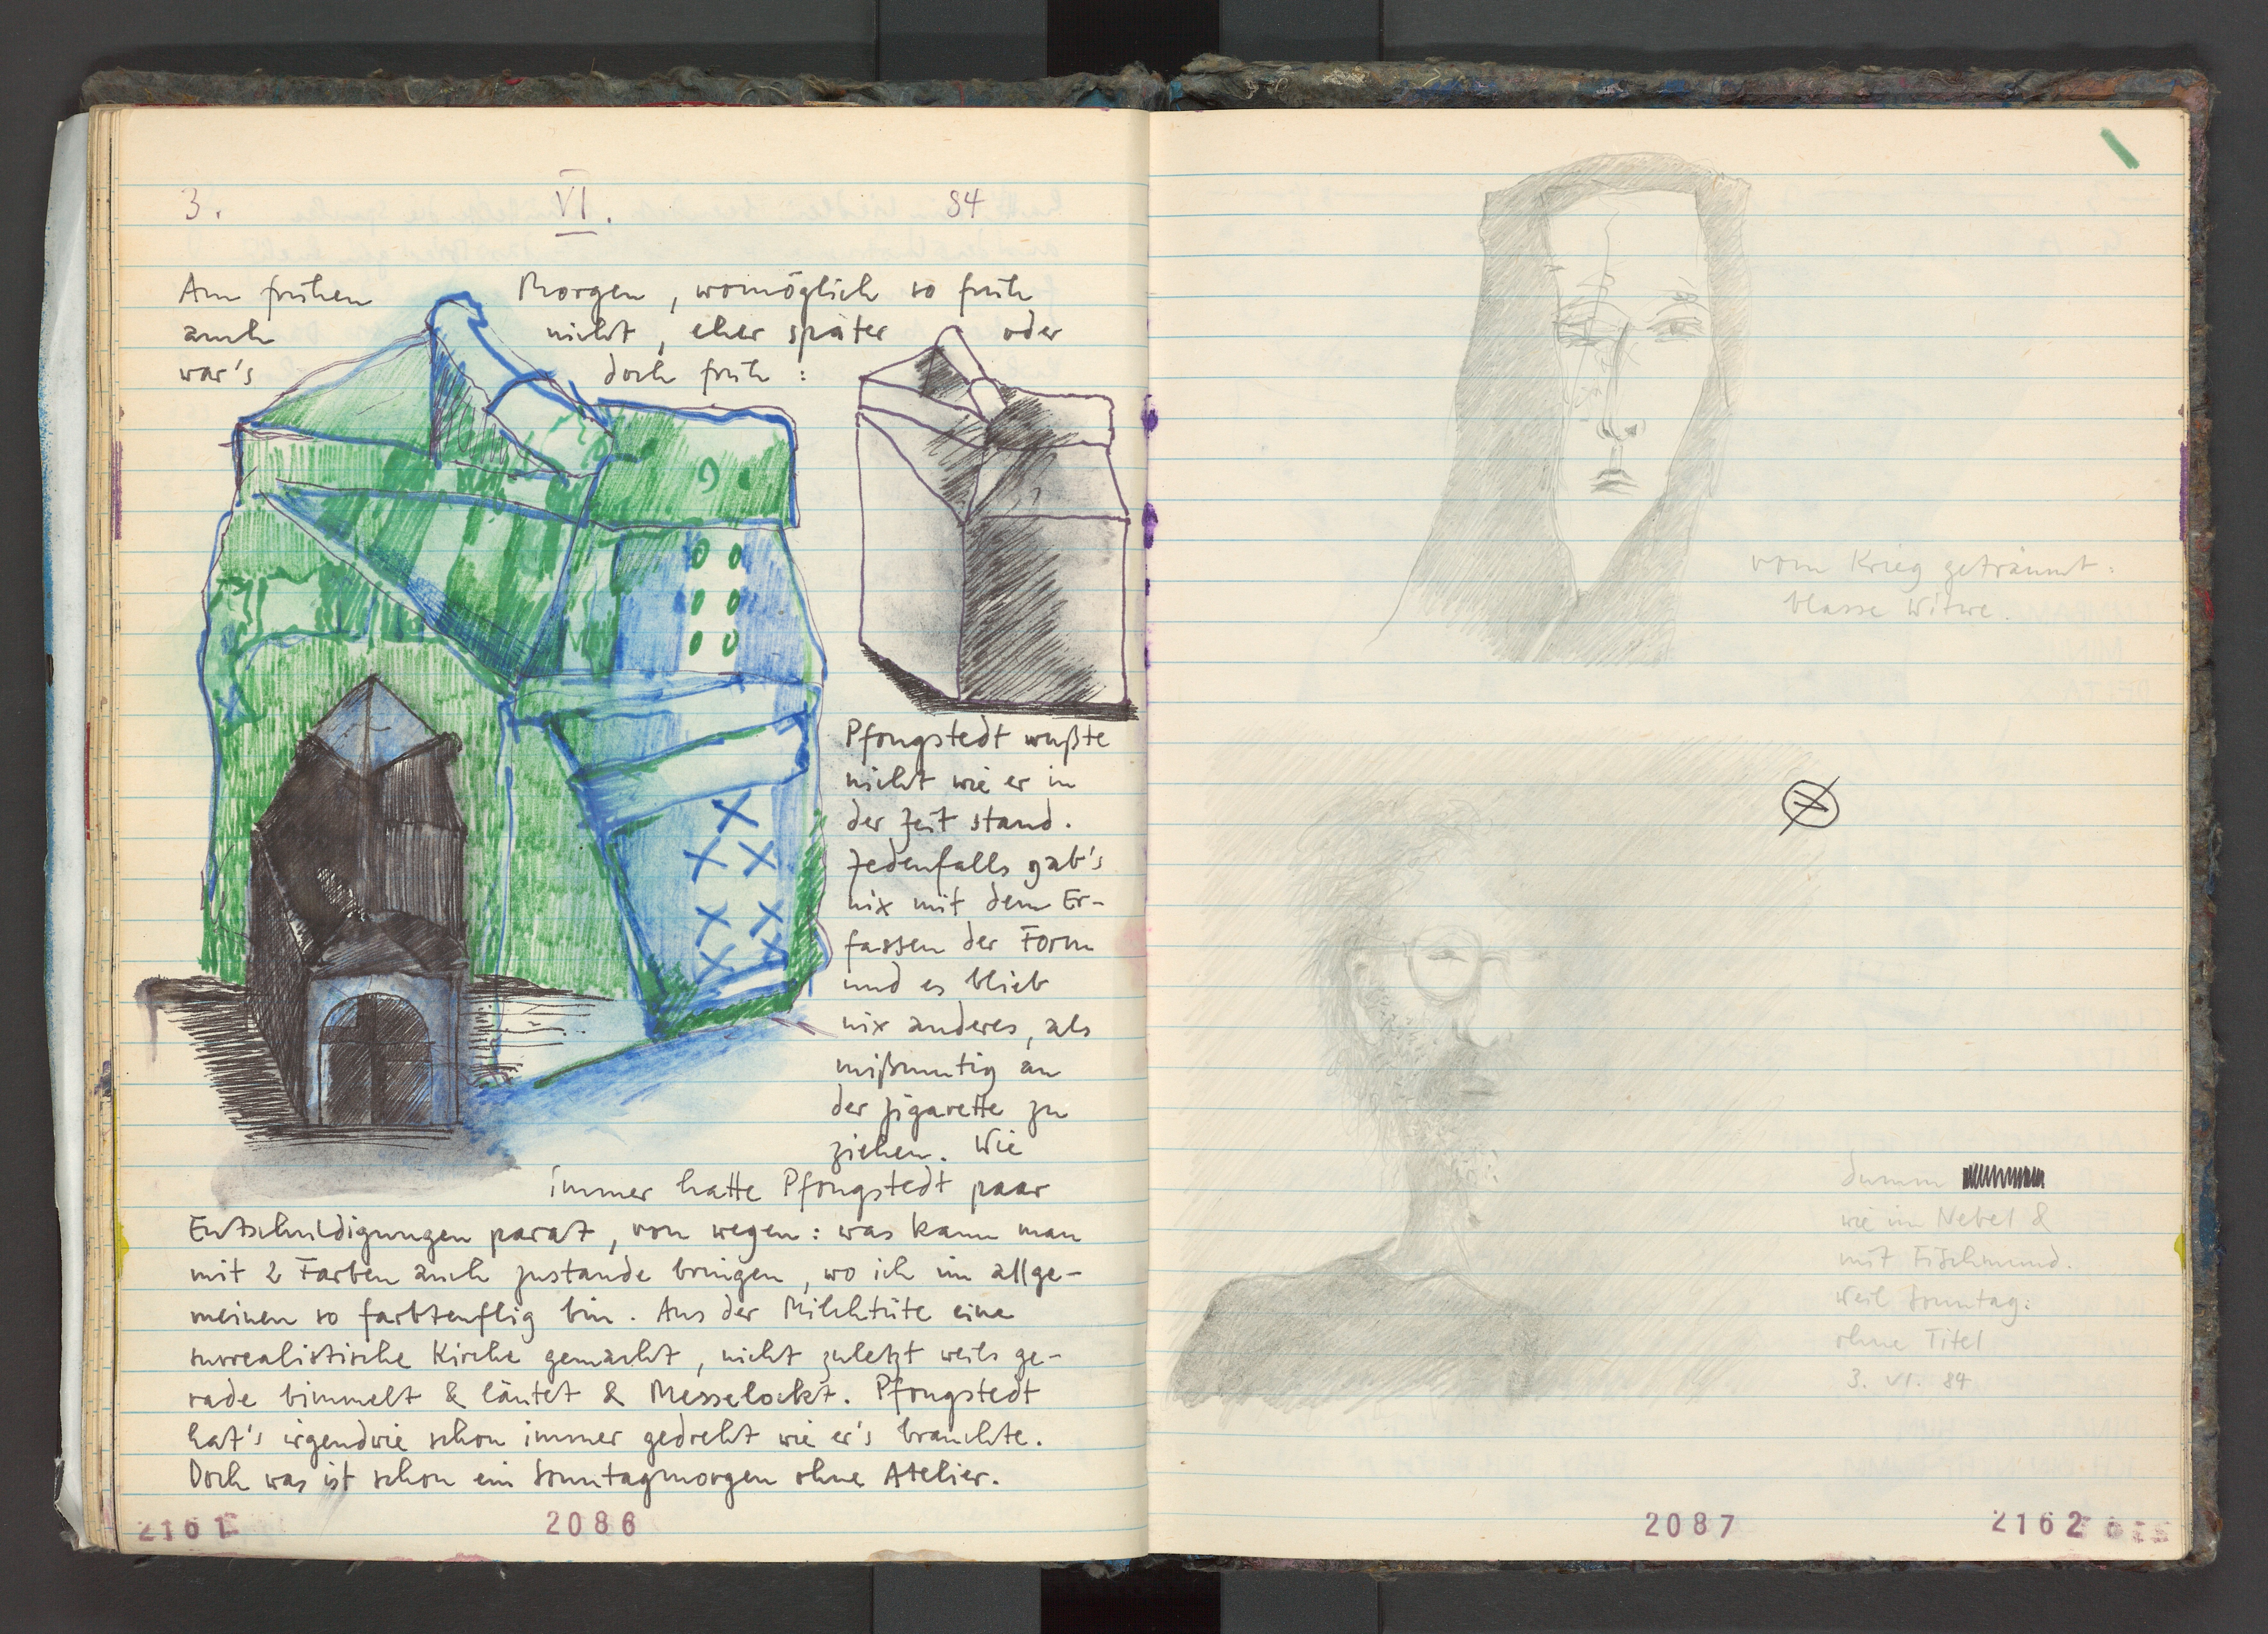 3. VI. 84
Am frühen Morgen, womöglich so früh
auch nicht, eher später oder
war's doch früh:
Pfongstedt wußte
nicht wie er in
der Zeit stand.
Jedenfalls gab's
nix mit dem Er-
fassen der Form
und es blieb
nix anderes, als
mißmutig an
der Zigarette zu
ziehen. Wie
immer hatte Pfongstedt paar
Entschuldigungen parat, von wegen: was kann man
mit 2 Farben auch zustande bringen, wo ich im allge-
meinen so farbteuflig bin. Aus der Milchtüte eine
surrealistische Kirche gemacht, nicht zuletzt weils ge-
rade bimmelt & läutet & Messelockt. Pfongstedt
hat's irgendwie schon immer gedreht wie er's brauchte.
Doch was ist schon ein Sonntagmorgen ohne Atelier.
2161 2086
vom Krieg geträumt:
blasse Witwe.
dumm
wie im Nebel &
mit Fischmund.
weil Sonntag:
ohne Titel
3. VI. 84
2087 2162